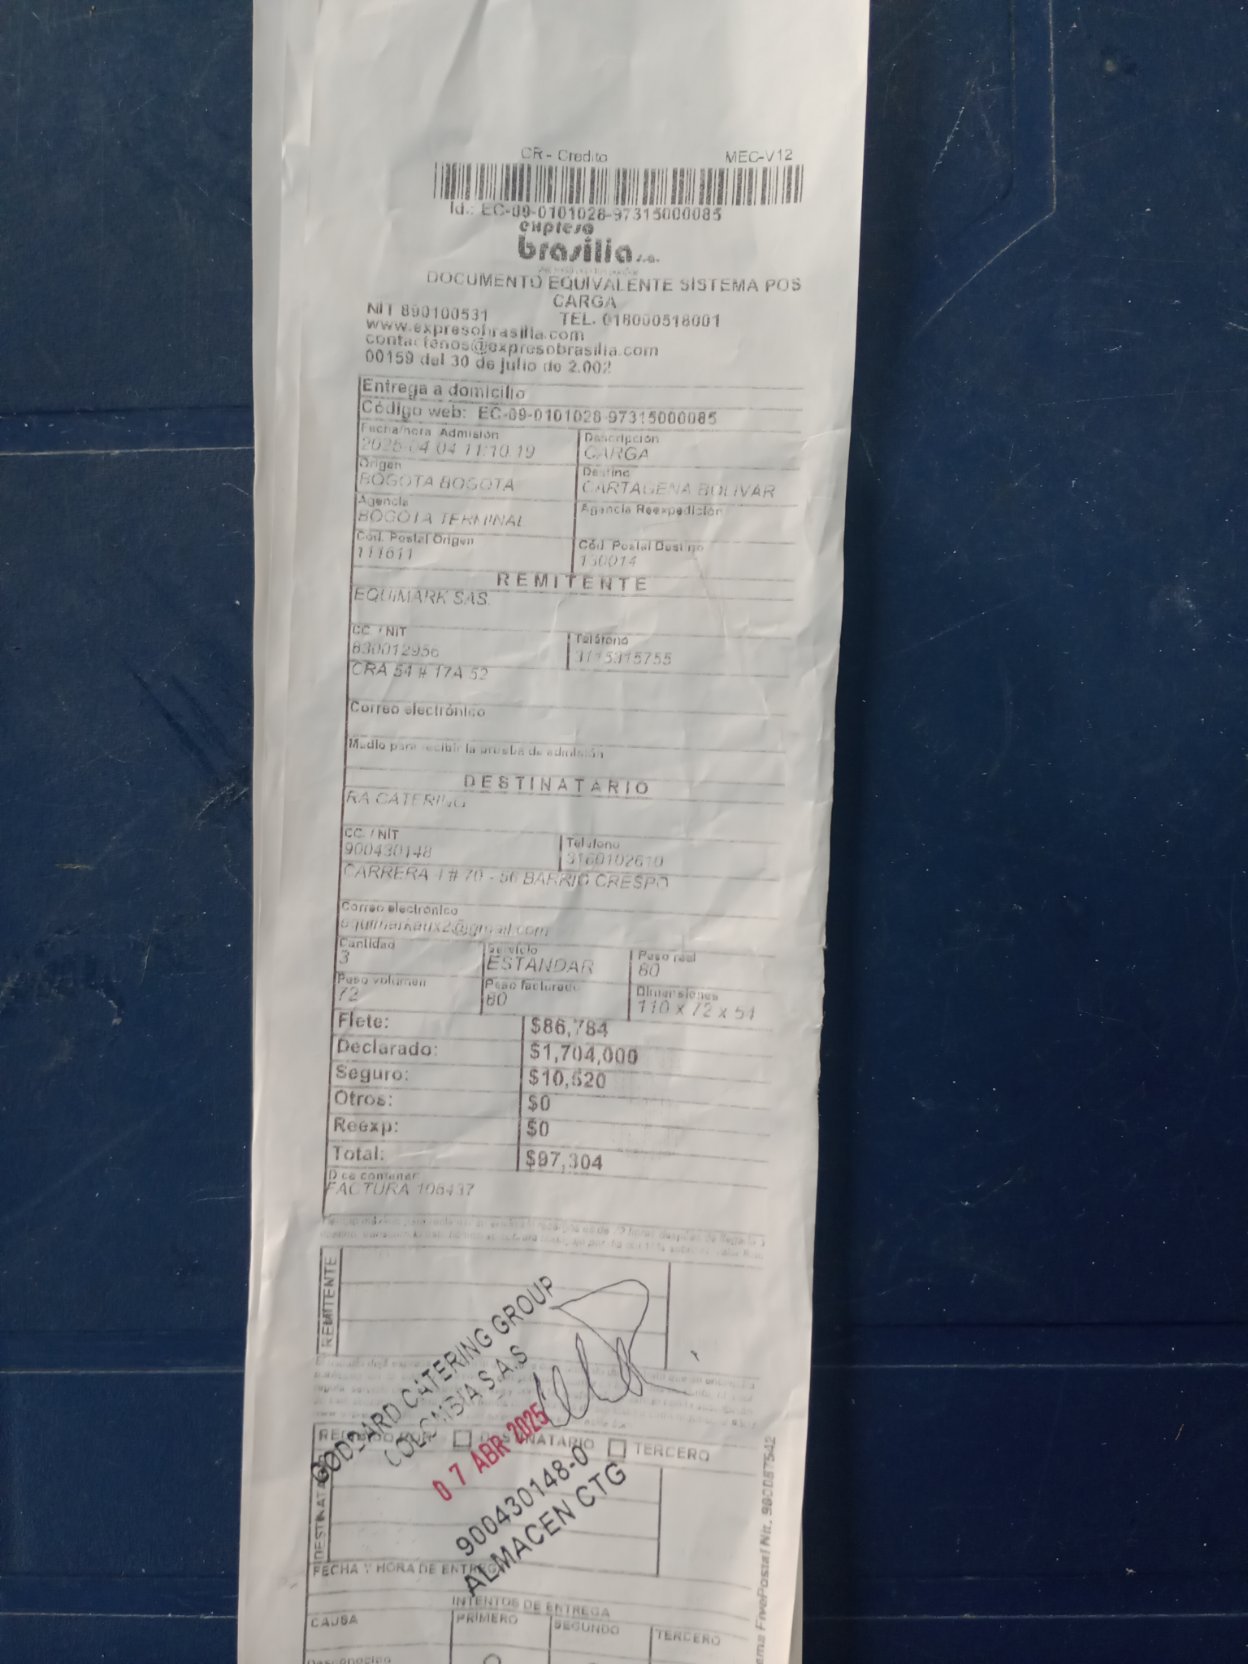 CR - Credito MEC-V12
Id.: EC-09-0101028-97315000085
expreso
brasilia s.a.
DOCUMENTO EQUIVALENTE SISTEMA POS
CARGA
NIT 890100531 TEL. 018000518001
www.expresobrasilia.com
contactenos@expresobrasilia.com
00159 del 30 de julio de 2.002
Entrega a domicilio
Código web: EC-09-0101028-97315000085
Fecha/hora Admisión Descripción
2025 04 04 11:10:19 CARGA
Origen Destino
BOGOTA BOGOTA CARTAGENA BOLIVAR
Agencia Agencia Reexpedición
BOGOTA TERMINAL
Cód. Postal Origen Cód. Postal Destino
111611 130014
REMITENTE
EQUIMARK SAS.
CC. / NIT Teléfono
830012956 3115315755
CRA 54 # 17A 52
Correo electrónico
Medio para recibir la prueba de admisión
DESTINATARIO
RA CATERING
CC. / NIT Teléfono
900430148 3160102610
CARRERA 1 # 70 - 56 BARRIO CRESPO
Correo electrónico
equimarkaux2@gmail.com
Cantidad Servicio Peso real
3 ESTANDAR 80
Peso volumen Peso facturado Dimensiones
72 80 110 x 72 x 51
Flete: $86,784
Declarado: $1,704,000
Seguro: $10,520
Otros: $0
Reexp: $0
Total: $97,304
Dice contener
FACTURA 106437
REMITENTE
GODDARD CATERING GROUP
COLOMBIA S.A.S
07 ABR 2025
900430148-0
ALMACEN CTG
DESTINATARIO TERCERO
DESTINATARIO
FECHA Y HORA DE ENTREGA
INTENTOS DE ENTREGA
CAUSA PRIMERO SEGUNDO TERCERO
Desconocido